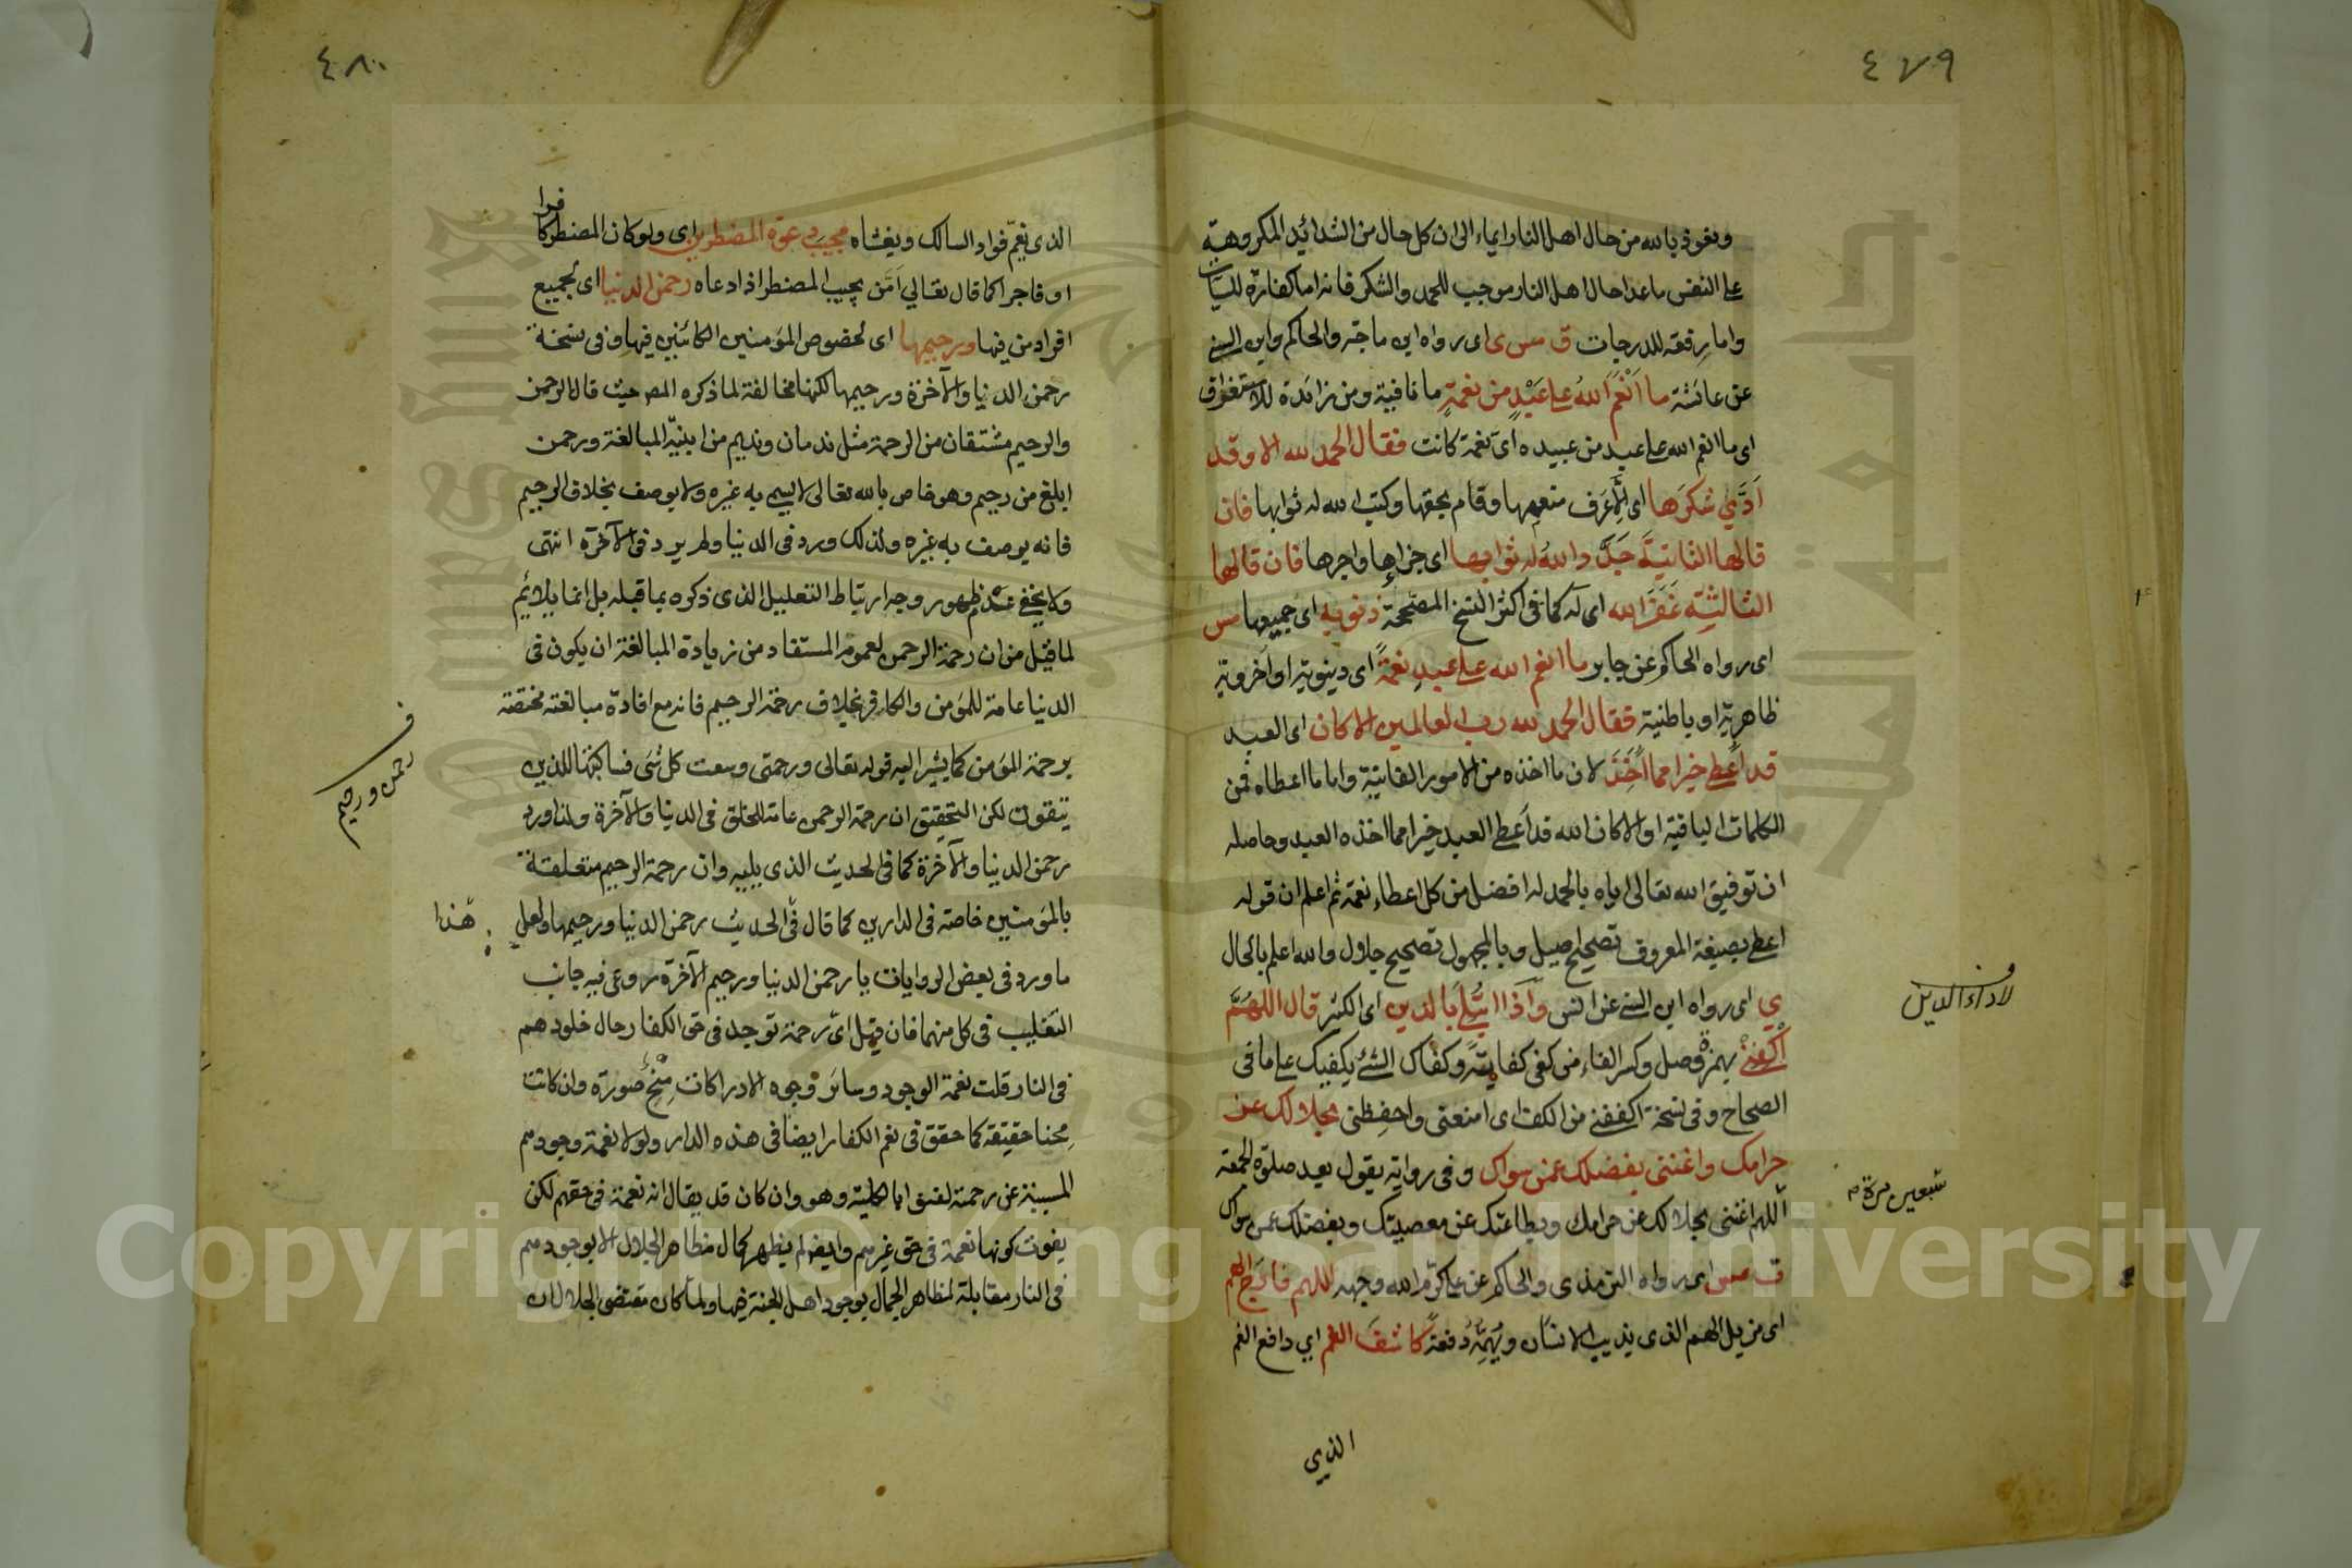 ٤٧٩
ونعوذ بالله من حال اهل النار ايماء الى ان كل حال من الشدائد المكروهة
على النفس ما عدا حال اهل النار موجب للحمد والشكر فانه اما كفارة للسيات
واما رفعة للدرجات ق مس ى اى رواه ابن ماجة والحاكم وابن السنى
عن عائشة ما اَنْعَمَ اللهُ على عَبْدٍ من نعمةٍ ما نافية ومن زائدة للاستغراق
اى ما انعم الله على عبد من عبيده اىّ نعمة كانت فقال الحمد لله الا وقد
اَدَّي شكرَها اى لِاَنَّه عَرَف منعمها وقام بحقها وكتب الله له ثوابها فان
قالها الثانيةَ جَدَّد اللهُ له ثوابها اى جزاءها واجرها فان قالها
الثالثة غَفَرَ الله اى له كما فى اكثر النسخ المصححة ذنوبه اى جميعها مس
اى رواه الحاكم عن جابر ما انعم الله على عبدٍ نعمةً اى دينوية او اخروية
ظاهرية او باطنية فقال الحمد لله رب العالمين الا كان اى العبد
قد اعطى خيرا مما اَخَذَ لان ما اخذه من الامور الفانية واما ما اعطاه فمن
الكلمات الباقية او الا كان الله قد اعطى العبد خيرا مما اخذه العبد وحاصله
ان توفيق الله تعالى اياه بالحمد له افضل من كل اعطاء نعمة ثم اعلم ان قوله
اعطى بصيغة المعروف تصحيح اصيل وبالمجهول تصحيح جلال والله اعلم بالحال
ي اى رواه ابن السنى عن انس واذا ابتُلي بالدين اى الكثر قال اللهُمَّ
اكْفِنِىْ بهمزة وصل وكسر الفاء من كفى كفايةً وكفاك الشئ يكفيك على ما فى
الصحاح وفى نسخة اكففنى من الكف اى امنعنى واحفِظنى بحلالك عن
حرامك واغننى بفضلك عمن سواك وفى رواية يقول بعد صلوة الجمعة
اللهم اغننى بحلالك عن حرامك وبطاعتك عن معصيتك وبفضلك عمن سواك
ت مس اى رواه الترمذى والحاكم عن على كرّم الله وجهه اللهم فارَجَ الهم
اى مزيل الهم الذى يذيب الانسان ويُهِمُّه دفعةً كاشفَ الغم اي دافع الغم
الذي
لاداء الدين
سبعين مرة
٤٨٠
الذى يغمّ فواد السالك ويغشاه مجيب دعوة المضطرين اى ولو كان المضطر كافرا
او فاجرا كما قال تعالي اَمَّن يجيب المضطر اذا دعاه رحمن الدنيا اى لجميع
افراد من فيها ورحيمها اى لخصوص المؤمنين الكائنين فيها وفى نسخة
رحمن الدنيا والآخرة ورحيمها لكنها مخالفة لما ذكره المص حيث قال الرحمن
والرحيم مشتقان من الرحمة مثل ندمان ونديم من ابنية المبالغة ورحمن
ابلغ من رحيم وهو خاص بالله تعالى لا يسمى به غيره ولا يوصف بخلاف الرحيم
فانه يوصف به غيره ولذلك ورد فى الدنيا ولم يرد فى الآخرة انتهى
ولا يخفى عدم ظهور وجه ارتباط التعليل الذى ذكره بما قبله بل انما يلائم
لما قيل من ان رحمة الرحمن لعمومه المستفاد من زيادة المبالغة ان يكون فى
الدنيا عامة للمؤمن والكافر بخلاف رحمة الرحيم فانه مع افادة مبالغته مختصة
برحمة المؤمن كما يشير اليه قوله تعالى ورحمتى وسعت كل شئ فساكتبها للذين
يتقون لكن التحقيق ان رحمة الرحمن عامة للخلق فى الدنيا والآخرة ولذا ورد
رحمن الدنيا والآخرة كما فى الحديث الذى يليه وان رحمة الرحيم متعلقة
بالمؤمنين خاصة فى الدارين كما قال فى الحديث رحمن الدنيا ورحيمها ولعل هذا
ما ورد فى بعض الروايات يا رحمن الدنيا ورحيم الآخرة روعى فيه جانب
التغليب فى كل منهما فان قيل اىّ رحمة توجد فى حق الكفار حال خلودهم
فى النار قلت نعمة الوجود وسائر وجوه الادراكات مِنَح صورة وان كانت
مِحنا حقيقة كما حقق فى نعم الكفار ايضا فى هذه الدار ولولا نعمة وجودهم
المسببة عن رحمة لفنوا بالكلية وهو وان كان قد يقال انه نعمة فى حقهم لكن
يفوت كونها نعمة فى حق غيرهم وايضا لم يظهر كمال مظاهر الجلال الا بوجودهم
فى النار مقابلة لمظاهر الجمال بوجود اهل الجنة فيها ولما كان مقتضى الجلال ان
رحمن ورحيم